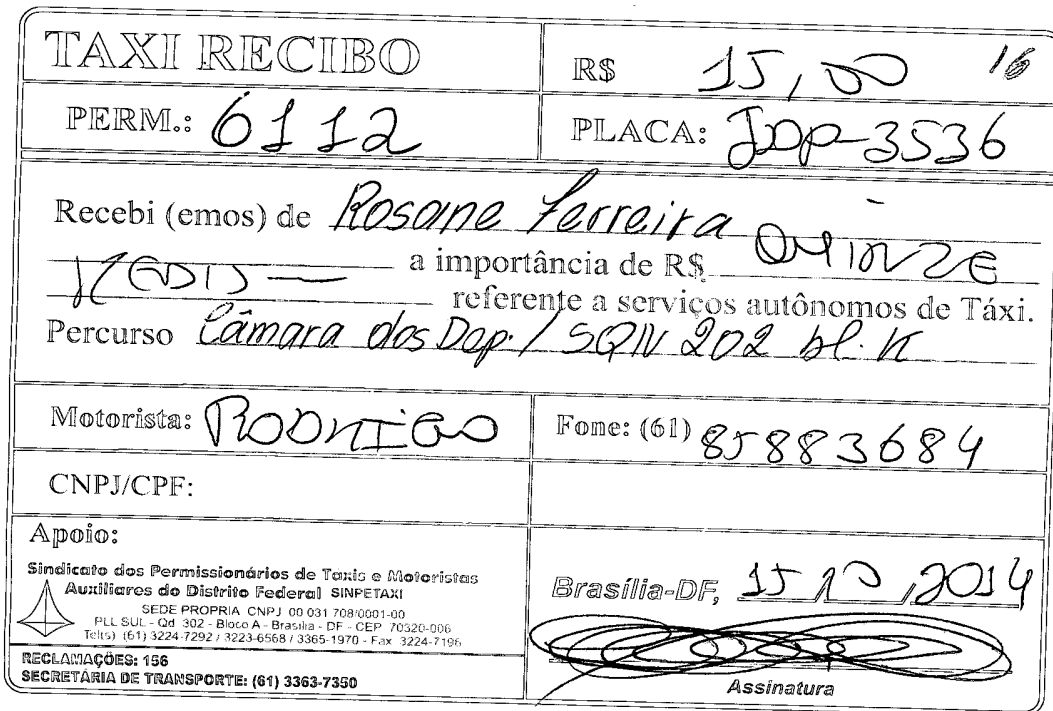 TAXI RECIBO
R$ 15,00 16
PERM.: 6112
PLACA: JDP-3536
Recebi (emos) de Rosane Ferreira
a importância de R$ QUINZE
REAIS — referente a serviços autônomos de Táxi.
Percurso Câmara dos Dep. / SQN 202 bl. K
Motorista: RODRIGO
Fone: (61) 85883684
CNPJ/CPF:
Apoio:
Sindicato dos Permissionários de Taxis e Motoristas
Auxiliares do Distrito Federal SINPETAXI
SEDE PROPRIA CNPJ 00 031 708/0001-00
PLL SUL - Qd 302 - Bloco A - Brasilia - DF - CEP 70320-006
Tel(s) (61) 3224-7292 / 3223-6568 / 3365-1970 - Fax 3224-7196
RECLAMAÇÕES: 156
SECRETÁRIA DE TRANSPORTE: (61) 3363-7350
Brasília-DF, 15 10 , 2014
Assinatura